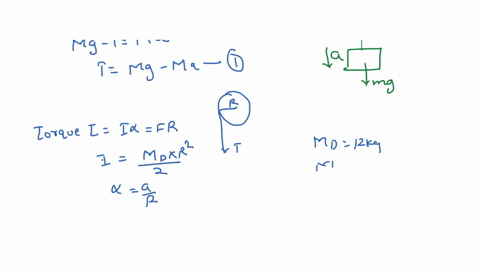 Mg-T=
T= Mg - Ma — ①
a
mg
R
T
Torque I = Iα = FR
I = M_D×R²/2
α = a/R
M_D = 12kg